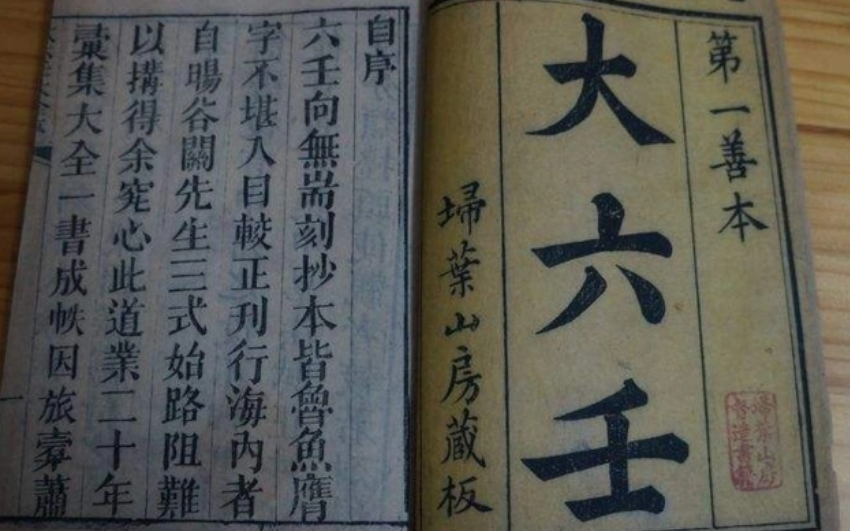 第一善本
大六壬
埽葉山房藏板
自序
六壬向無耑刻抄本皆魯魚膺
字不堪入目較正刊行海內者
自暘谷關先生三式始路阻難
以搆得余究心此道業二十年
彙集大全一書成帙因旅橐蕭